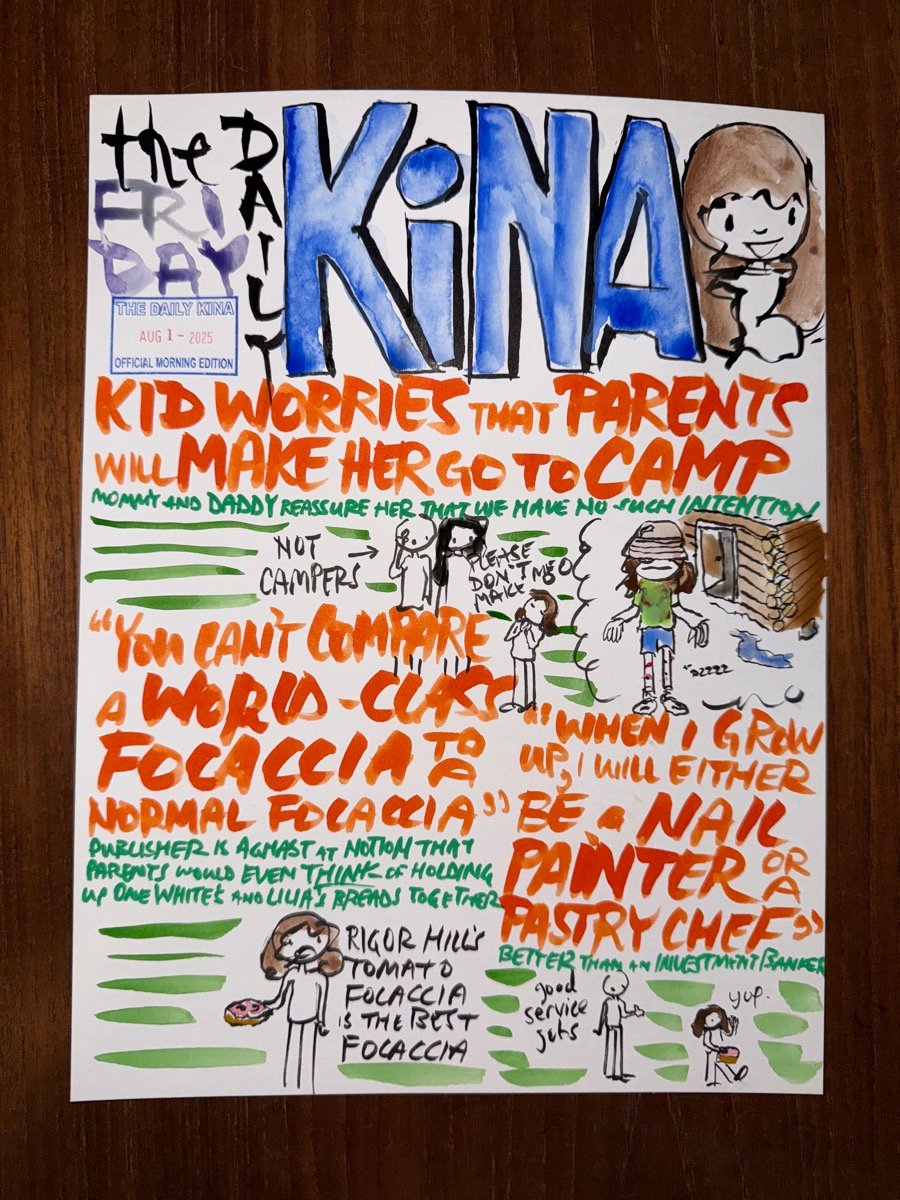 the
FRI
DAY
DAILY
KiNA
THE DAILY KINA
AUG 1 - 2025
OFFICIAL MORNING EDITION
KID WORRIES THAT PARENTS
WILL MAKE HER GO TO CAMP
MOMMY AND DADDY REASSURE HER THAT WE HAVE NO SUCH INTENTION
NOT
CAMPERS
PLEASE
DON'T
MAKE
ME GO
"YOU CAN'T COMPARE
A WORLD-CLASS
FOCACCIA TO A
NORMAL FOCACCIA"
PUBLISHER IS AGHAST AT NOTION THAT
PARENTS WOULD EVEN THINK OF HOLDING
UP ONE WHITE'S AND LILIA'S BREADS TOGETHER
RIGOR HILL'S
TOMATO
FOCACCIA
IS THE BEST
FOCACCIA
"WHEN I GROW
UP, I WILL EITHER
BE A NAIL
PAINTER OR A
PASTRY CHEF"
BETTER THAN AN INVESTMENT BANKER
good
service
jobs
yup.